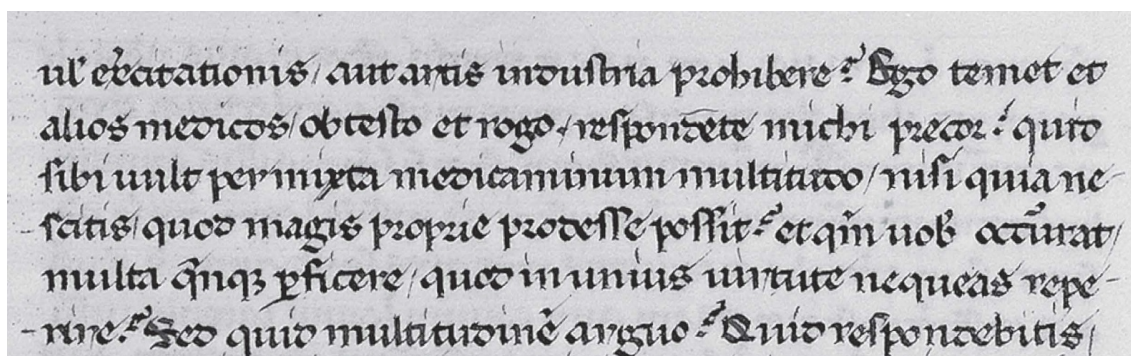 ul' ex͛citationis / aut artis industria prohibere? Ego temet et
alios medicos / obtesto et rogo. respondēte michi precor? quid
sibi uult permixta medicaminum multitudo / nisi quia ne-
scitis / quod magis proprie prodesse possit? et qm̄ uob' occ͛urat /
multa qn̄qꝫ ꝑficere / quod in unius uirtute nequeas repe-
rire? Sed quid multitudinē arguo? Quid respondebitis /